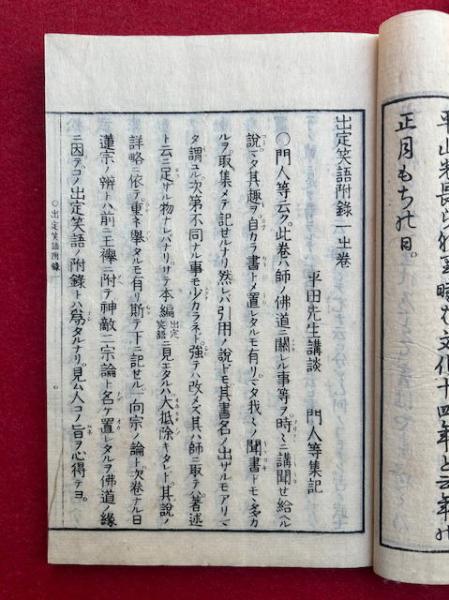 平山先長らが
時は文化十四年と云年の
正月もち の日。
出定笑語附録一之巻
平田先生講談　門人等集記
〇門人等云ク。此巻ハ師ノ佛道ニ關レル事等ヲ時々ニ講聞セ給ヘル
說ドモ又其趣ヲ自カラ書トメ置レタルモ有リ又我々ノ聞書ドモヽ多カ
ルヲ取集メテ記セルナリ然レバ引用ノ說ドモ其書名ノ出ザルモアリマ
タ謂ユル次第不同ナル事モ少カラネド強テハ改メズ其ハ師ニ取テハ著述
ト云ニ足ザル物ナレバナリサテ本編出定笑語ニ見エタルハ大抵除キタレド其說ノ
詳略ニ依テ重ネ擧タルモ有リ斯テ下ニ記セル一向宗ノ論ト次卷ナル日
蓮宗ノ辨トハ前ニ王襷ニ附テ神敵二宗論ト名ケ置レタルヲ佛道ノ緣
ニ因テコノ出定笑語ノ附錄トハ爲タルナリ。見ム人コノ旨ヲ心得テヨ。
〇出定笑語附錄